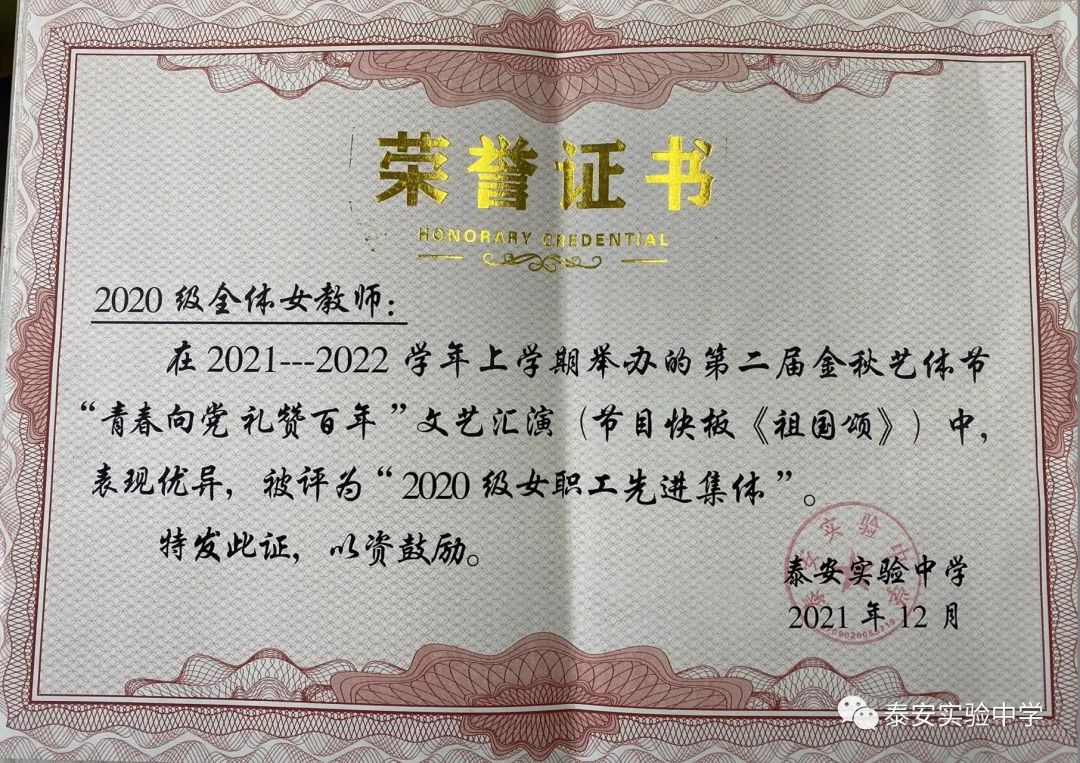 荣誉证书
HONORARY CREDENTIAL
2020级全体女教师：
在2021---2022学年上学期举办的第二届金秋艺体节
“青春向党 礼赞百年”文艺汇演（节目快板《祖国颂》）中，
表现优异，被评为“2020级女职工先进集体”。
特发此证，以资鼓励。
泰安实验中学
2021年12月
泰安实验中学